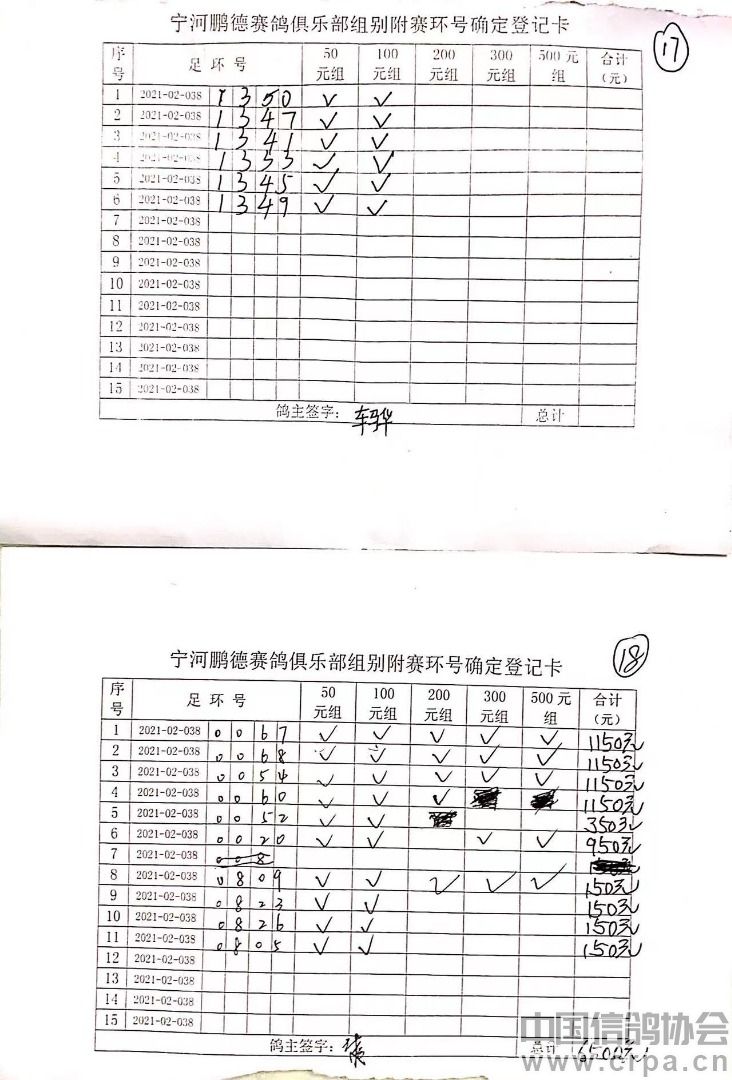 宁河鹏德赛鸽俱乐部组别附赛环号确定登记卡
17
序号 足环号 50元组 100元组 200元组 300元组 500元组 合计(元)
1 2021-02-038 1350 ✓ ✓
2 2021-02-038 1347 ✓ ✓
3 2021-02-038 1341 ✓ ✓
4 2021-02-038 1333 ✓ ✓
5 2021-02-038 1345 ✓ ✓
6 2021-02-038 1349 ✓ ✓
7 2021-02-038
8 2021-02-038
9 2021-02-038
10 2021-02-038
11 2021-02-038
12 2021-02-038
13 2021-02-038
14 2021-02-038
15 2021-02-038
鸽主签字: 总计
宁河鹏德赛鸽俱乐部组别附赛环号确定登记卡
18
序号 足环号 50元组 100元组 200元组 300元组 500元组 合计(元)
1 2021-02-038 0067 ✓ ✓ ✓ ✓ ✓ 1150元
2 2021-02-038 0068 ✓ ✓ ✓ ✓ ✓ 1150元
3 2021-02-038 0054 ✓ ✓ ✓ ✓ ✓ 1150元
4 2021-02-038 0060 ✓ ✓ ✓ 1150元
5 2021-02-038 0052 ✓ ✓ 350元
6 2021-02-038 0020 ✓ ✓ ✓ ✓ 950元
7 2021-02-038
8 2021-02-038 0809 ✓ ✓ ✓ ✓ ✓ 150元
9 2021-02-038 0823 ✓ ✓ 150元
10 2021-02-038 0826 ✓ ✓ 150元
11 2021-02-038 0805 ✓ ✓ 150元
12 2021-02-038
13 2021-02-038
14 2021-02-038
15 2021-02-038
鸽主签字: 总计 6500元
中国信鸽协会
www.crpa.cn